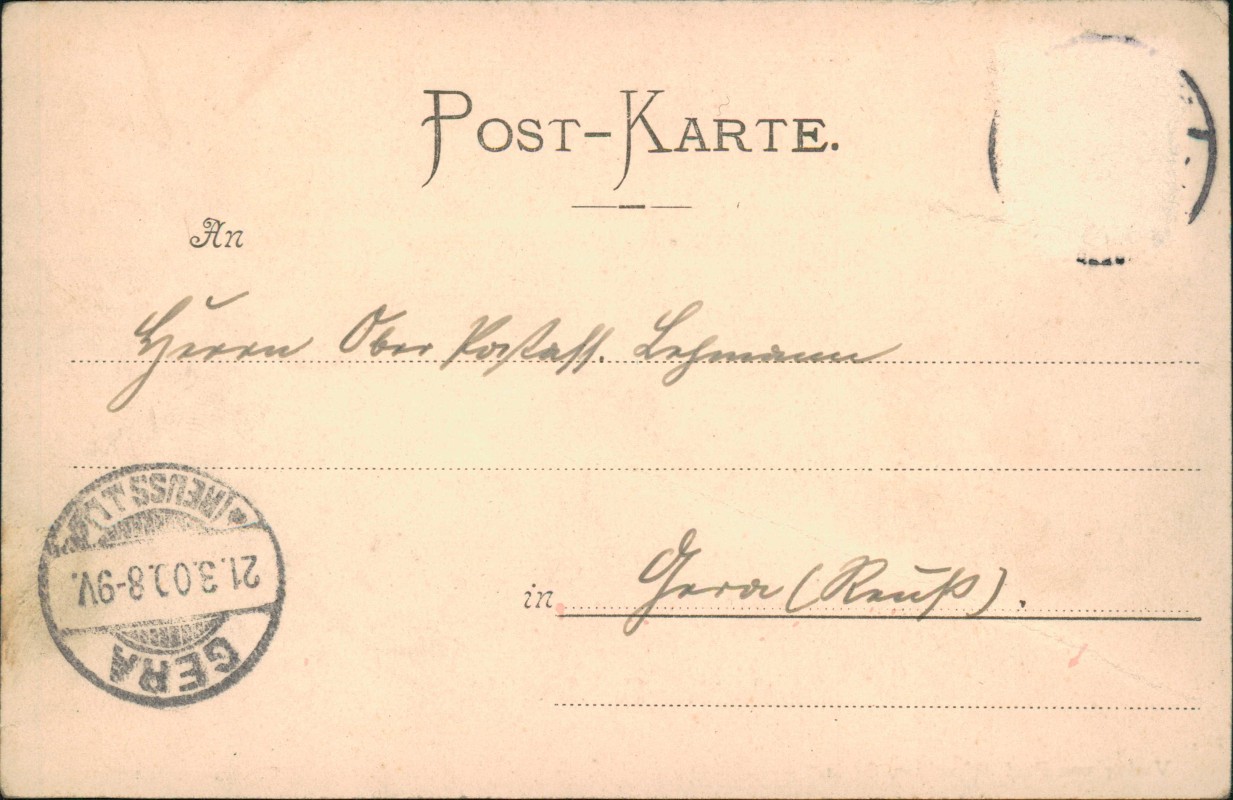 POST-KARTE.
An
Herrn Ober Postass. Lehmann
in Gera (Reuß).
GERA
21.3.00.8-9V.
(REUSS